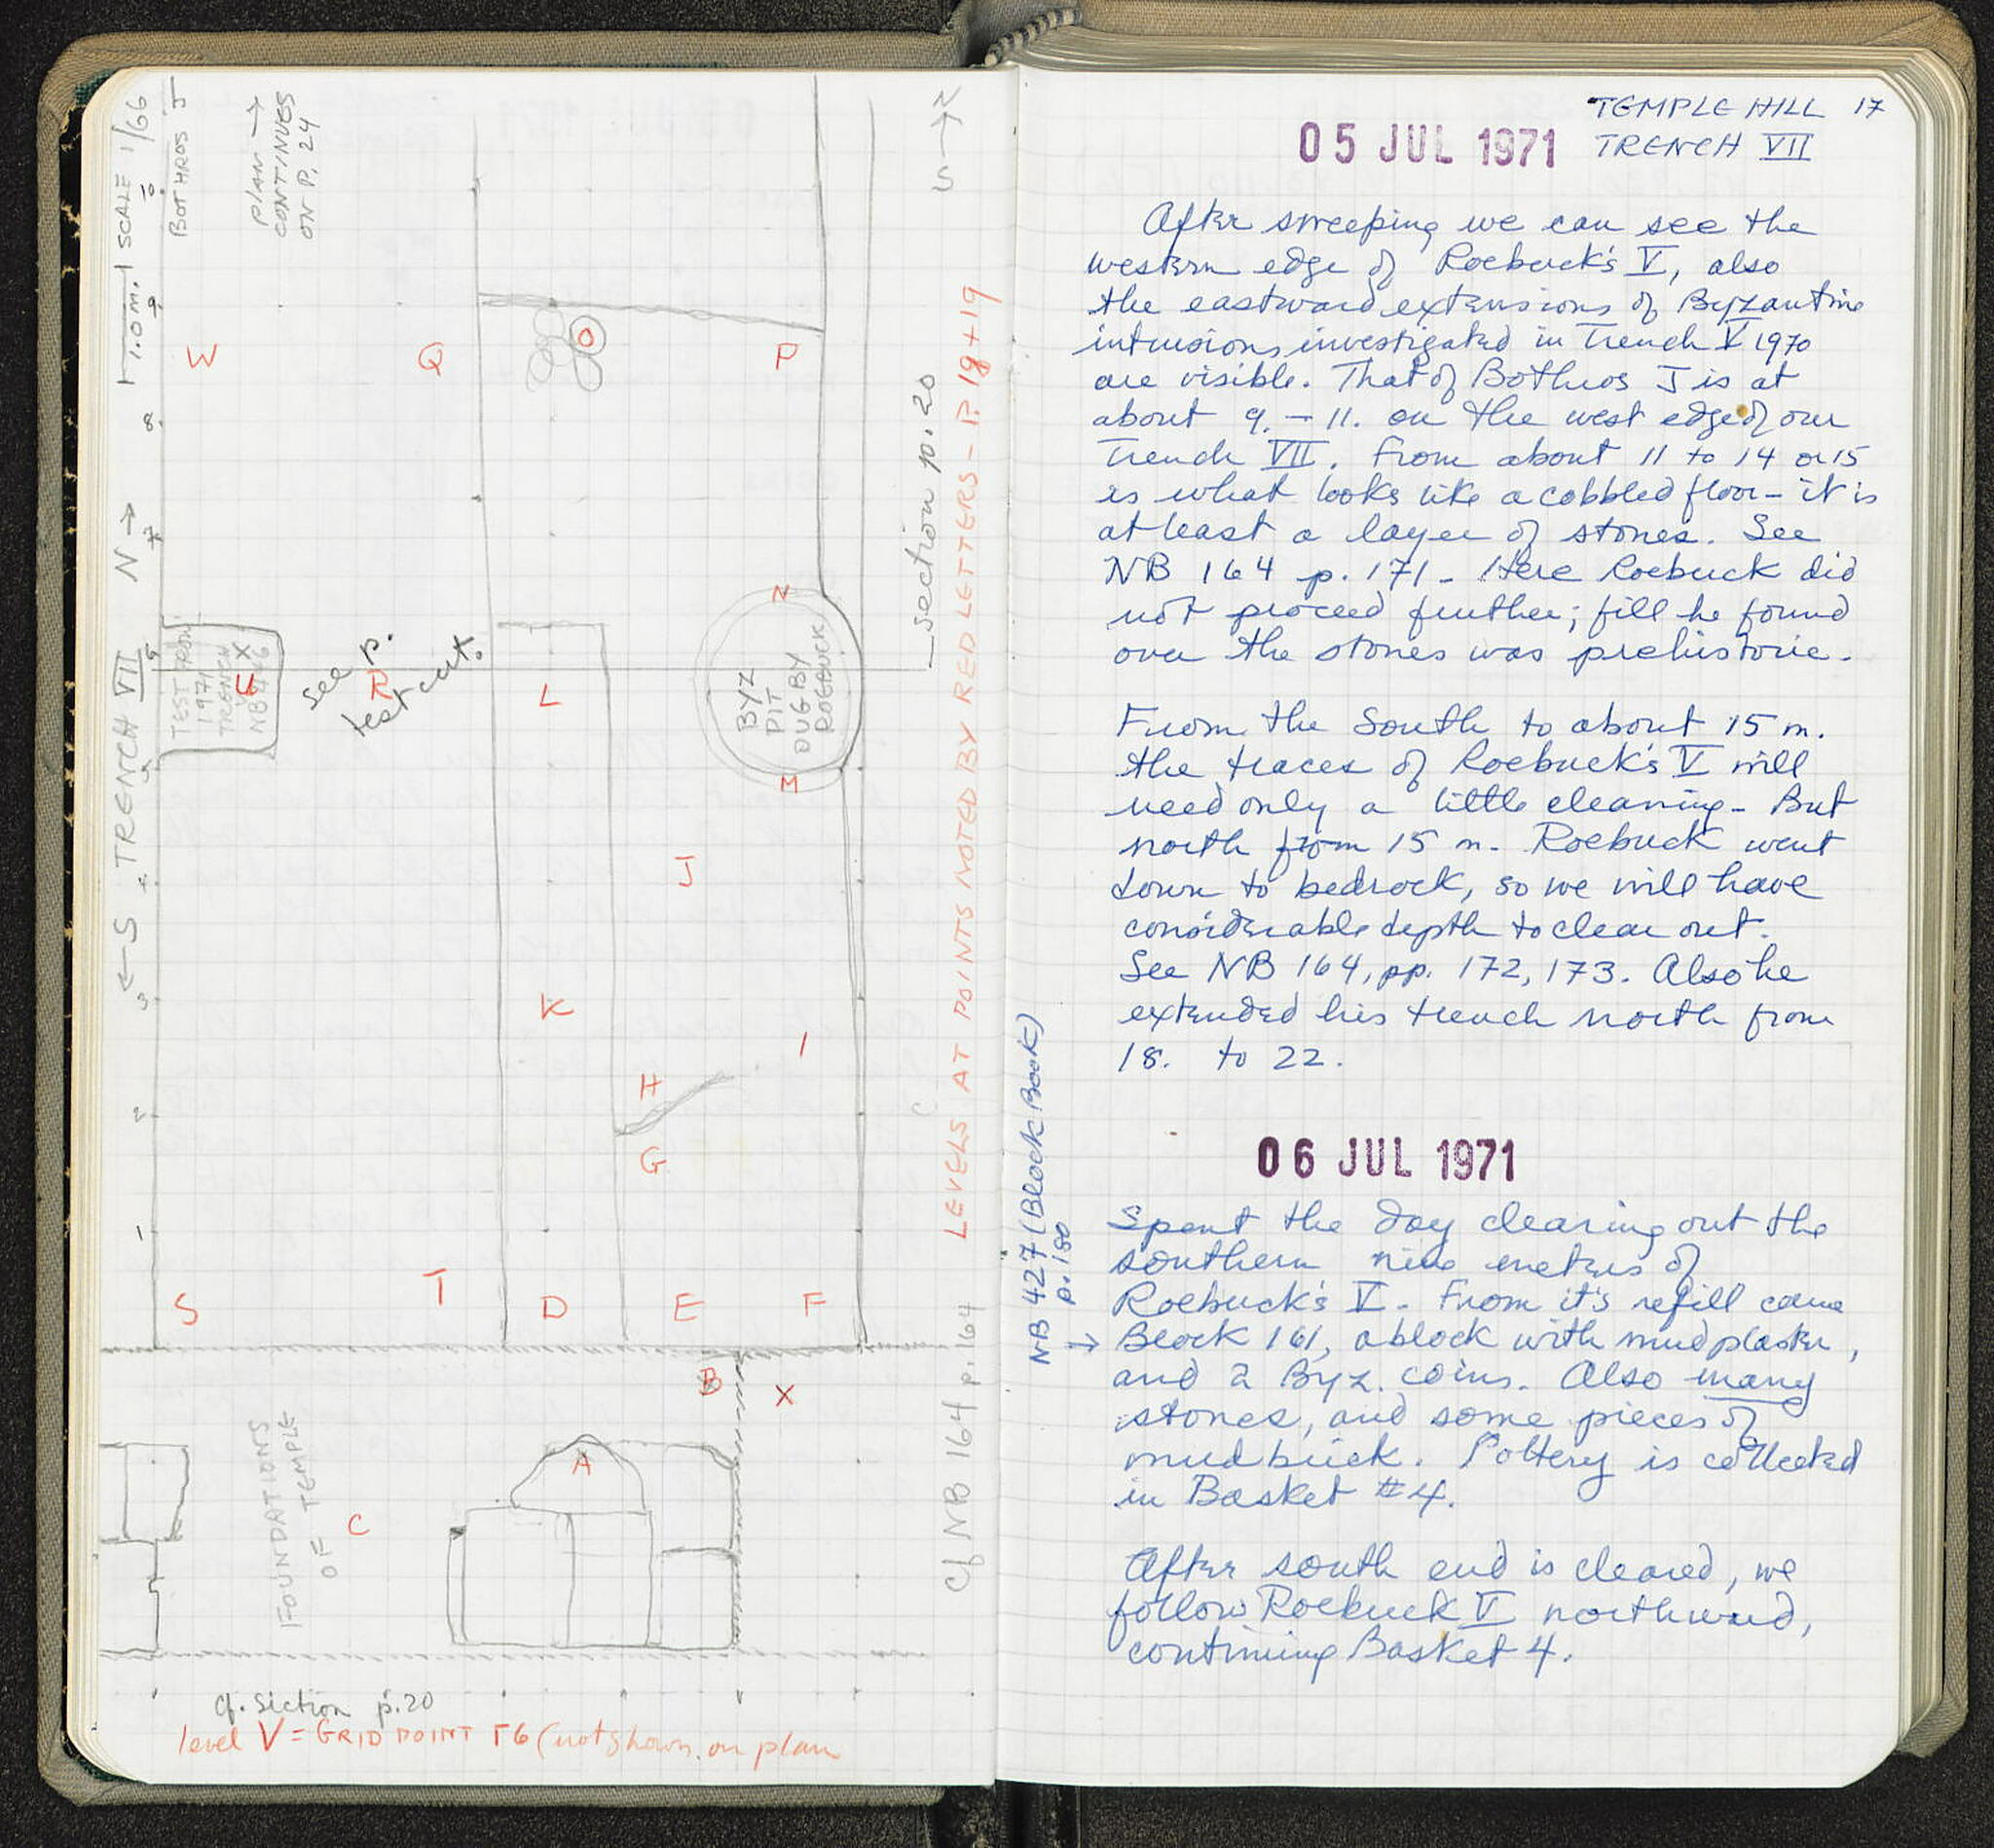 TRENCH VII
← S
N →
1.0 m.
SCALE 1/66
BOTHROS J
PLAN →
CONTINUES
ON P. 24
S → N
10
9
8
7
6
5
4
3
2
1
W
Q
O
P
N
TEST ROW
1971
TRENCH
X
U
NB 446
see p.
R
test cut.
L
BYZ
PIT
DUG BY
ROEBUCK
M
J
K
I
H
G
S
T
D
E
F
B
X
A
C
FOUNDATIONS
OF TEMPLE
section p. 20
LEVELS AT POINTS NOTED BY RED LETTERS - P. 18 + 19
Cf NB 164 p. 164
cf. Section p. 20
level V = GRID POINT Γ6 (not shown on plan
TEMPLE HILL 17
05 JUL 1971
TRENCH VII
After sweeping we can see the
western edge of Roebuck's V, also
the eastward extensions of Byzantine
intrusions investigated in Trench V 1970
are visible. That of Bothros J is at
about 9. - 11. on the west edge of our
Trench VII. From about 11 to 14 or 15
is what looks like a cobbled floor - it is
at least a layer of stones. See
NB 164 p. 171 - Here Roebuck did
not proceed further; fill he found
over the stones was prehistoric.
From the South to about 15 m.
the traces of Roebuck's V will
need only a little cleaning - But
north from 15 m. Roebuck went
down to bedrock, so we will have
considerable depth to clear out.
See NB 164, pp. 172, 173. Also he
extended his trench north from
18. to 22.
06 JUL 1971
Spent the day clearing out the
southern nine meters of
Roebuck's V. From it's refill came
NB 427 (Block Book)
p. 180
→ Block 161, a block with mud plaster,
and 2 Byz. coins. Also many
stones, and some pieces of
mudbrick. Pottery is collected
in Basket #4.
After south end is cleared, we
follow Roebuck V northward,
continuing Basket 4.